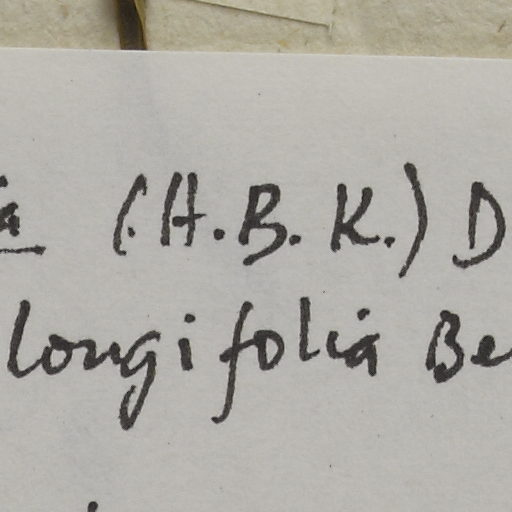 (H.B.K.) D
longifolia Be